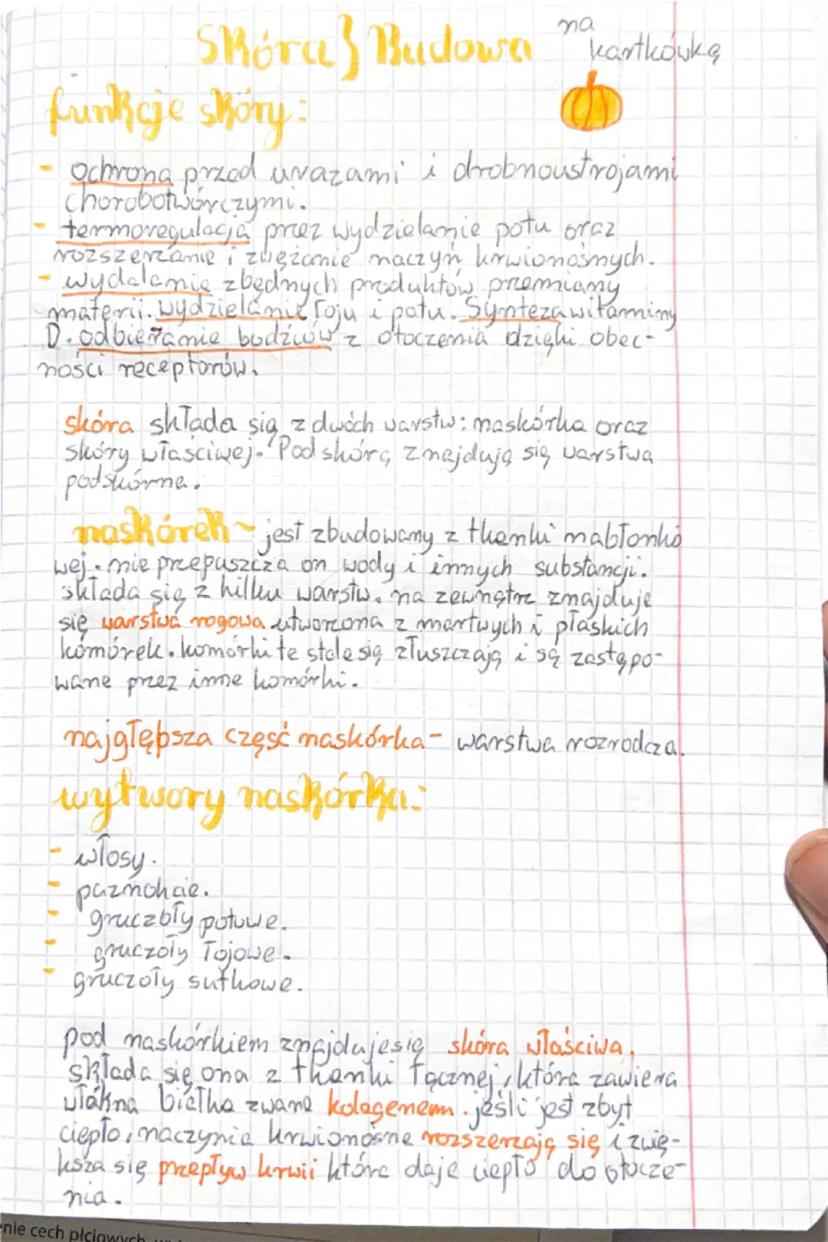 Skóra } Budowa
na
kartkówkę
funkcje skóry:
- ochrona przed urazami i drobnoustrojami
chorobotwórczymi.
- termoregulacja przez wydzielanie potu oraz
rozszerzanie i zwężanie naczyń krwionośnych.
- wydalanie zbędnych produktów przemiany
materii. wydzielanie łoju i potu. Synteza witaminy
D. odbieranie bodźców z otoczenia dzięki obec-
ności receptorów.
skóra składa się z dwóch warstw: naskórka oraz
skóry właściwej. Pod skórą znajdują się warstwa
podskórna.
naskórek ~ jest zbudowany z tkanki nabłonko
wej. nie przepuszcza on wody i innych substancji.
składa się z kilku warstw. na zewnątrz znajduje
się warstwa rogowa utworzona z martwych i płaskich
komórek. komórki te stale się złuszczają i są zastępo-
wane przez inne komórki.
najgłębsza część naskórka - warstwa rozrodcza.
wytwory naskórka:
- włosy.
- paznokcie.
- gruczoły potowe.
- gruczoły łojowe.
- gruczoły sutkowe.
pod naskórkiem znajduje się skóra właściwa,
składa się ona z tkanki łącznej, która zawiera
włókna białka zwane kolagenem. jeśli jest zbyt
ciepło, naczynia krwionośne rozszerzają się i zwię-
ksza się przepływ krwii która daje ciepło do otocze-
nia.
nie cech płciowych